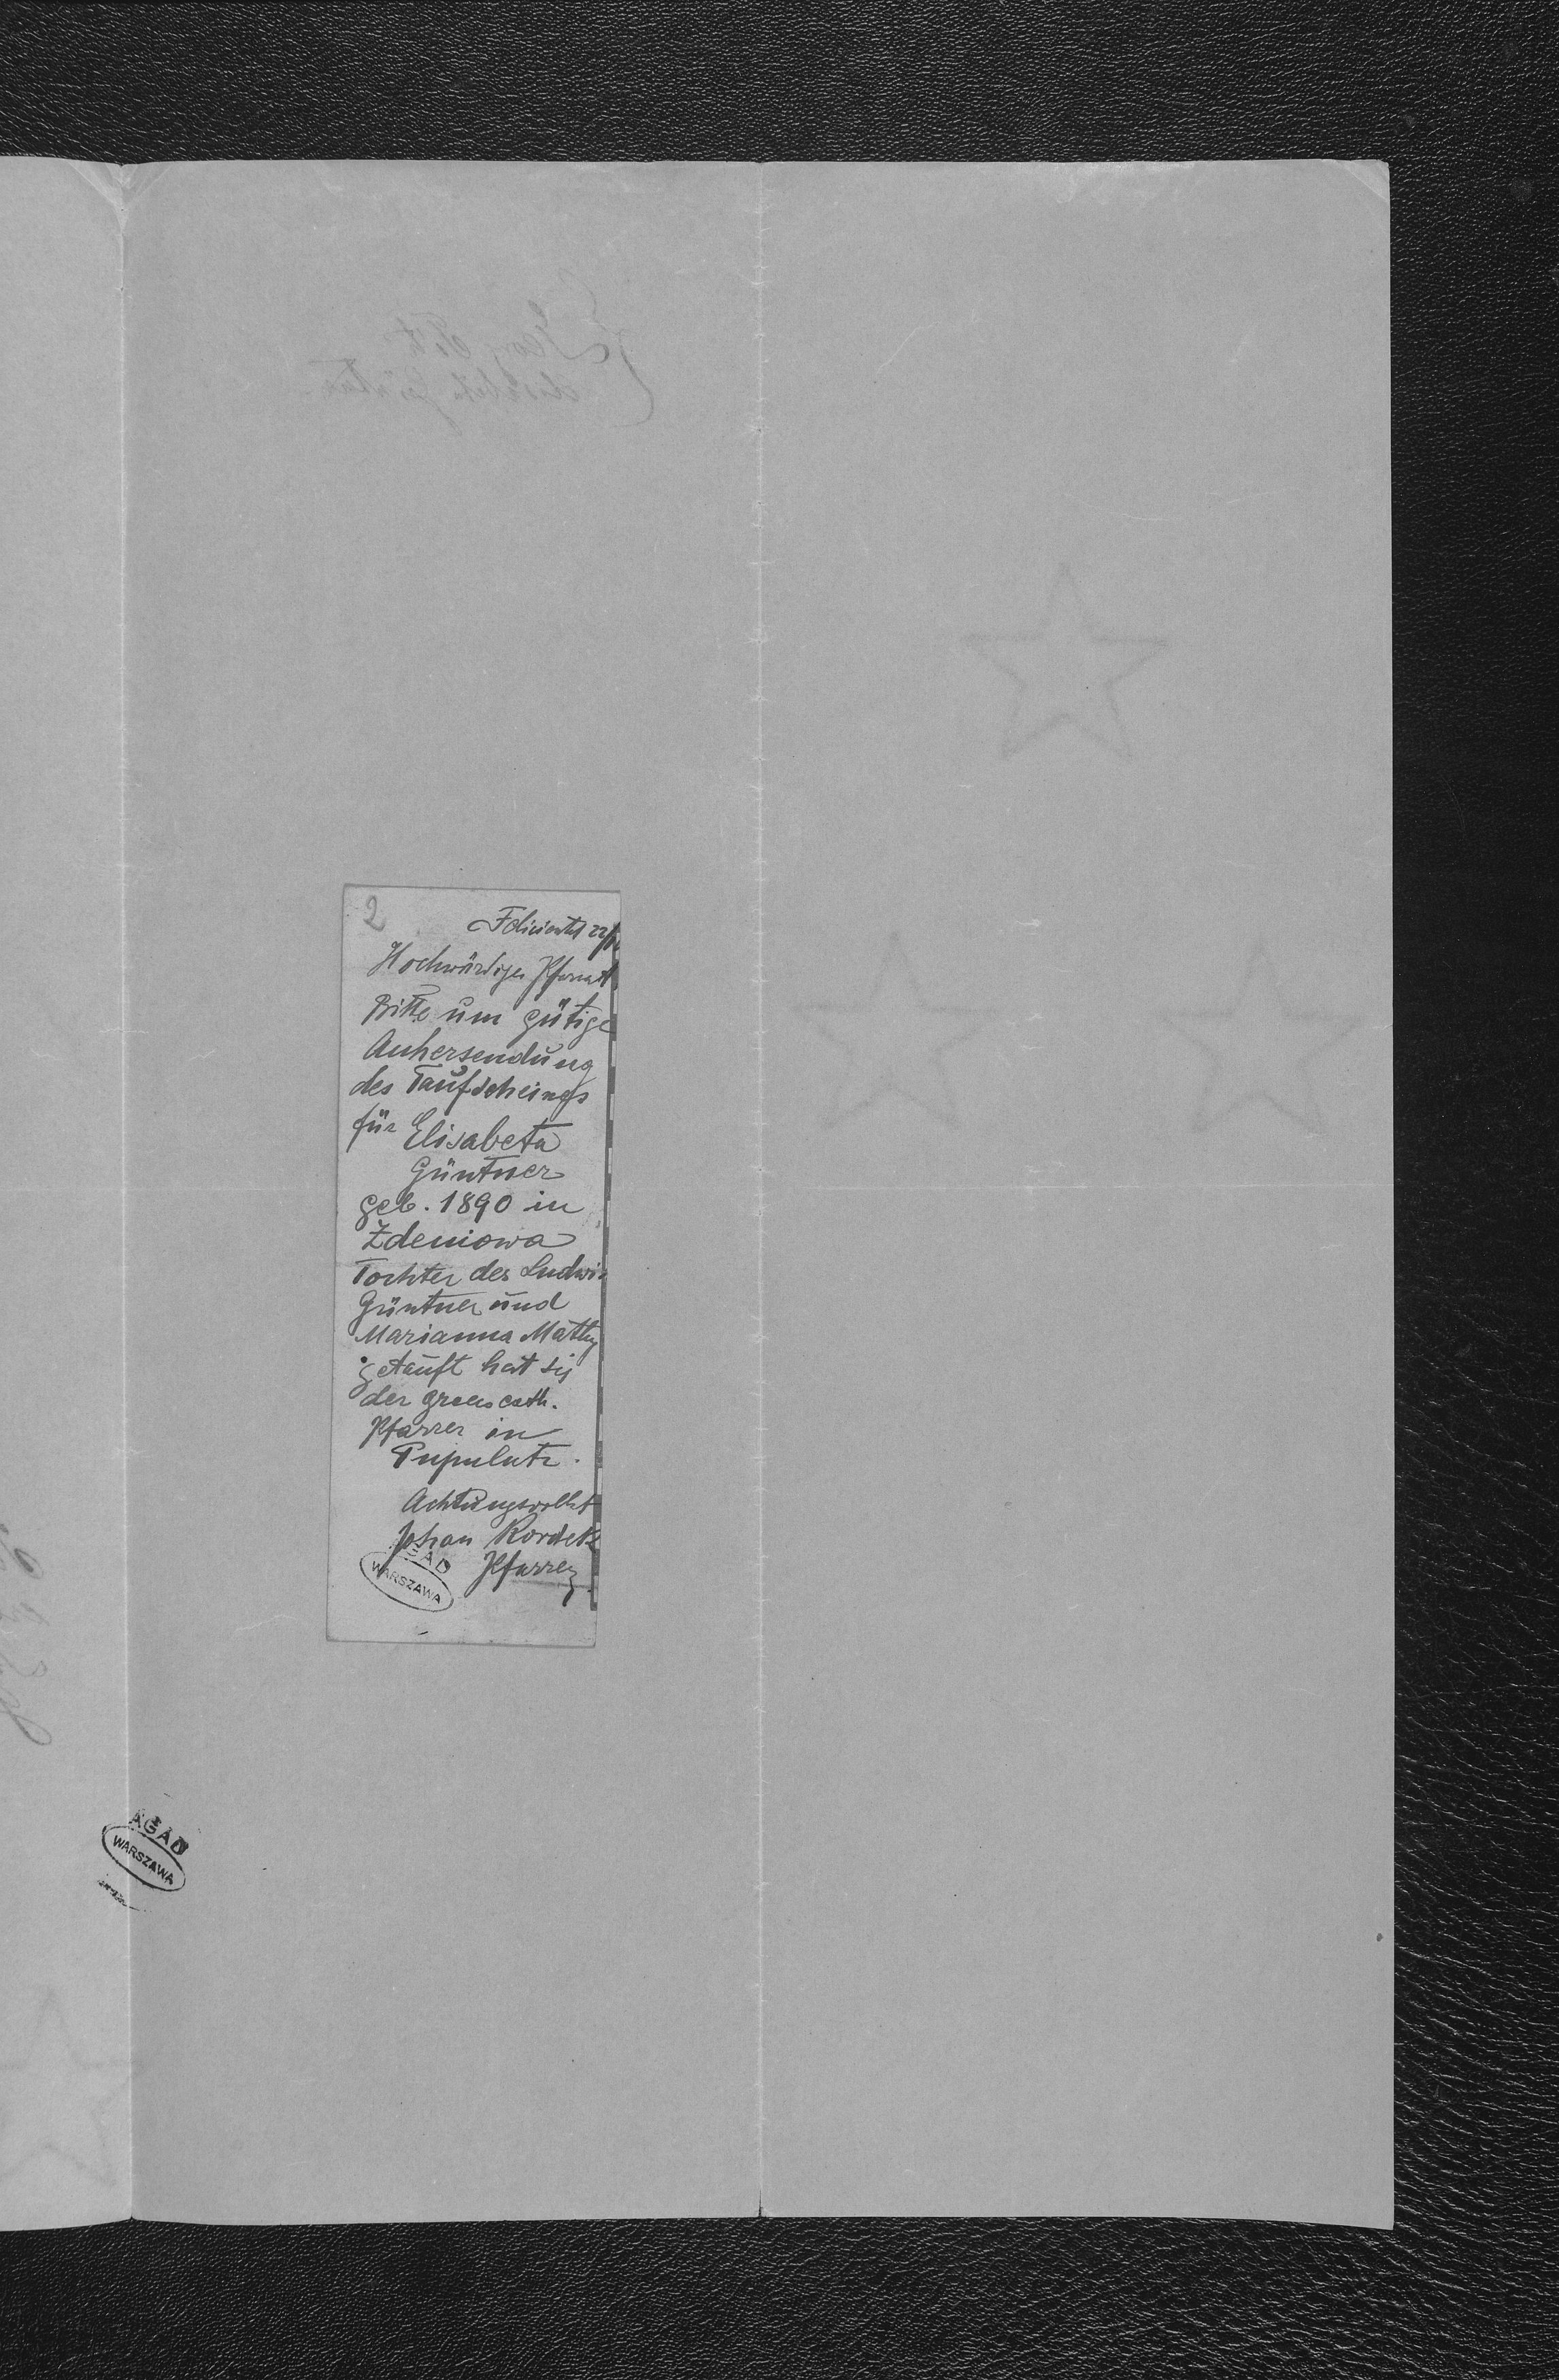 2
Felicienthal 22/
Hochwürdiger Pfarramt
Bitte um gütige
Anhersendung
des Taufscheines
für Elisabeta
Güntner
geb. 1890 in
Zdeniowa
Tochter des Ludwig
Güntner und
Marianna Mathy
getauft hat sie
der griech cath.
Pfarrer in
Pupulutz.
Achtungsvollst
Johan Kordek
Pfarrer
AGAD
WARSZAWA
AGAD
WARSZAWA